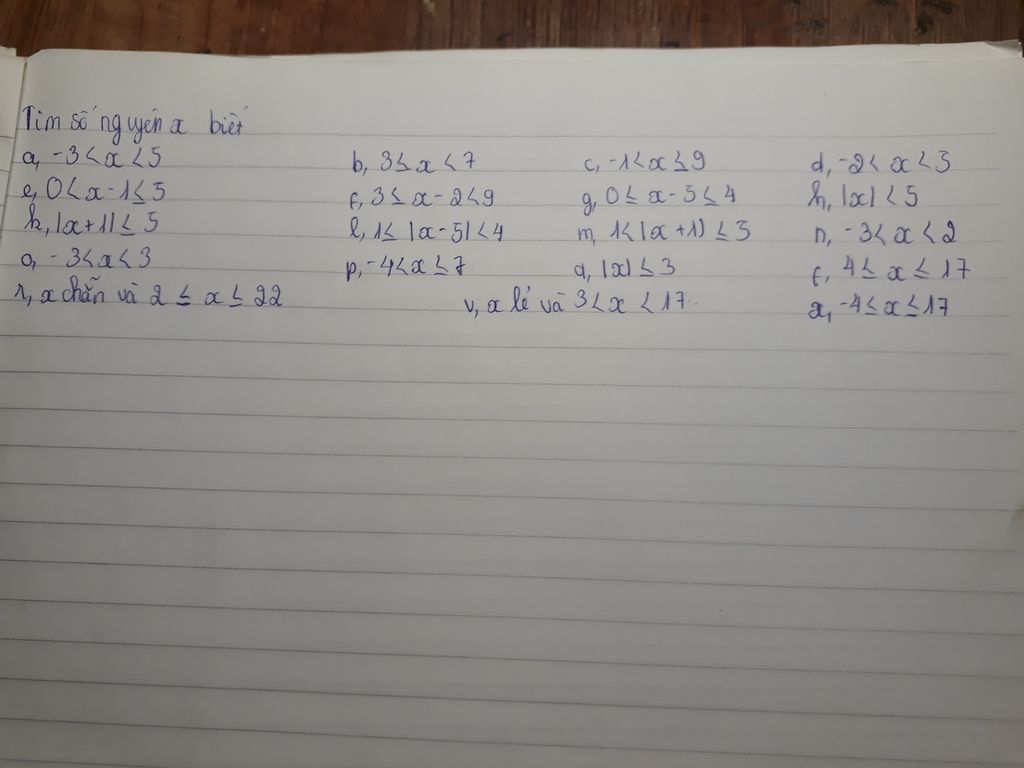 Tìm số nguyên x biết
a, -3 < x < 5 b, 3 ≤ x < 7 c, -1 < x ≤ 9 d, -2 < x < 3
e, 0 < x - 1 ≤ 5 f, 3 ≤ x - 2 < 9 g, 0 ≤ x - 5 ≤ 4 h, |x| < 5
k, |x + 1| ≤ 5 l, 1 ≤ |x - 5| < 4 m, 1 < |x + 1| ≤ 3 n, -3 < x < 2
o, -3 < x < 3 p, -4 < x ≤ 7 q, |x| ≤ 3 f, 4 ≤ x ≤ 17
r, x chẵn và 2 ≤ x ≤ 22 v, x lẻ và 3 < x < 17 x, -4 ≤ x ≤ 17